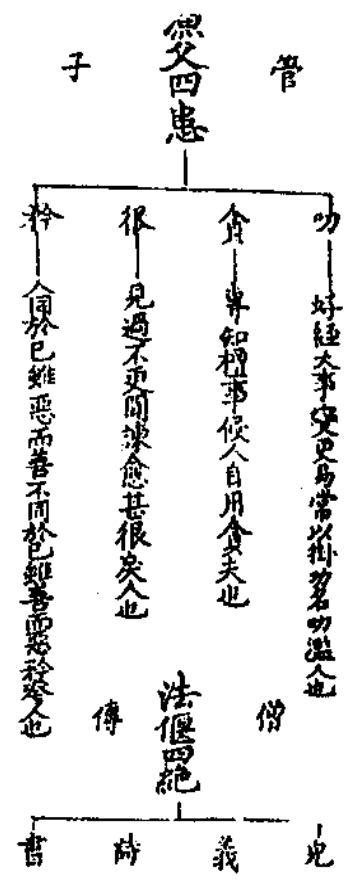 管子
魚父四患
叨
好經大事變更易常以掛功名叨濫人也
貪
專知擅事侵人自用貪夫也
很
見過不更聞諫愈甚很戾人也
矜
人同於己雖惡而善不同於己雖善而惡矜夸人也
僧傳
法偃四絶
皃
義
詩
書